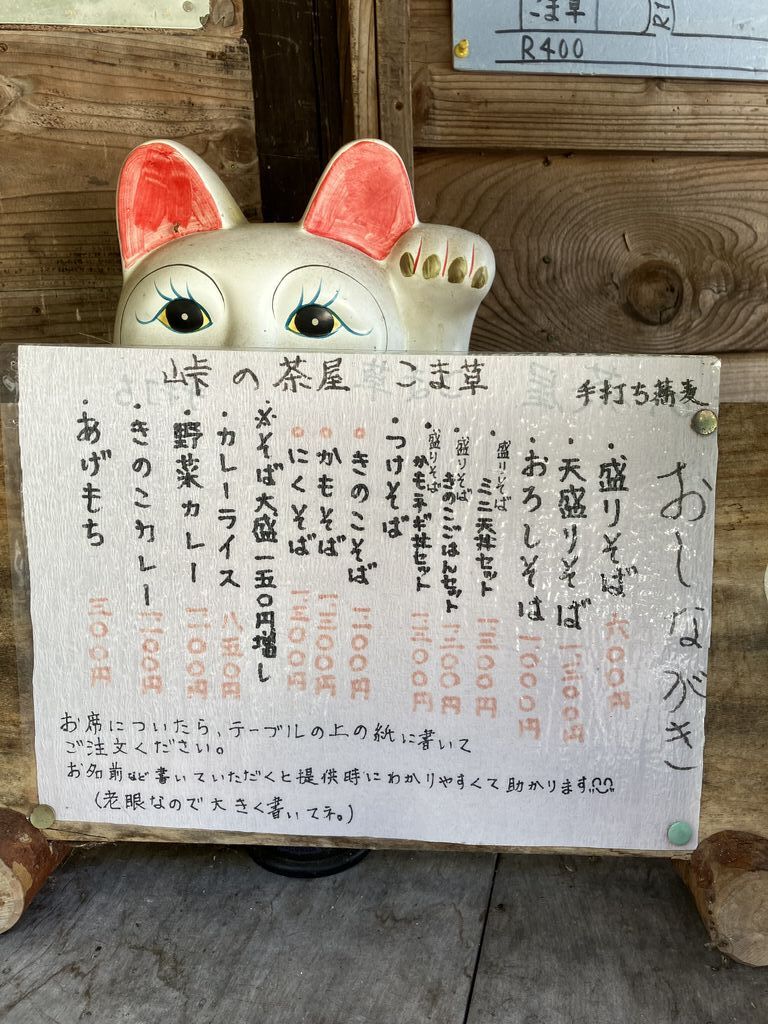 こま草
R400
峠の茶屋 こま草
手打ち蕎麦
おしながき
・盛りそば 六〇〇円
・天盛りそば
・おろしそば 一、〇〇〇円
・盛りそば ミニ天丼セット 一、三〇〇円
・盛りそば きのこごはんセット
・盛りそば かもネギ丼セット 一、三〇〇円
・つけそば
・きのこそば
・かもそば 一、三〇〇円
・にくそば 一、三〇〇円
※そば大盛一五〇円増し
・カレーライス 八五〇円
・野菜カレー
・きのこカレー
・あげもち 三〇〇円
お席についたら、テーブルの上の紙に書いて
ご注文ください。
お名前など書いていただくと提供時にわかりやすくて助かります
(老眼なので大きく書いてネ。)